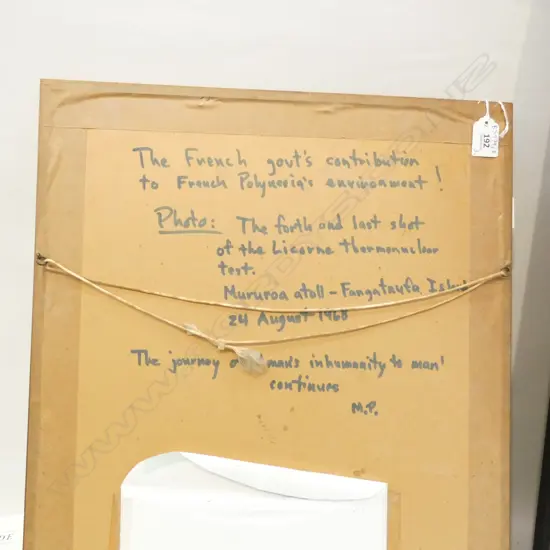 The French govt's contribution
to French Polynesia's environment!
Photo: The forth and last shot
of the Licorne thermonuclear
test.
Mururoa atoll - Fangataufa
24 August 1968
The journey man's inhumanity to man'
continues
M.P.
192